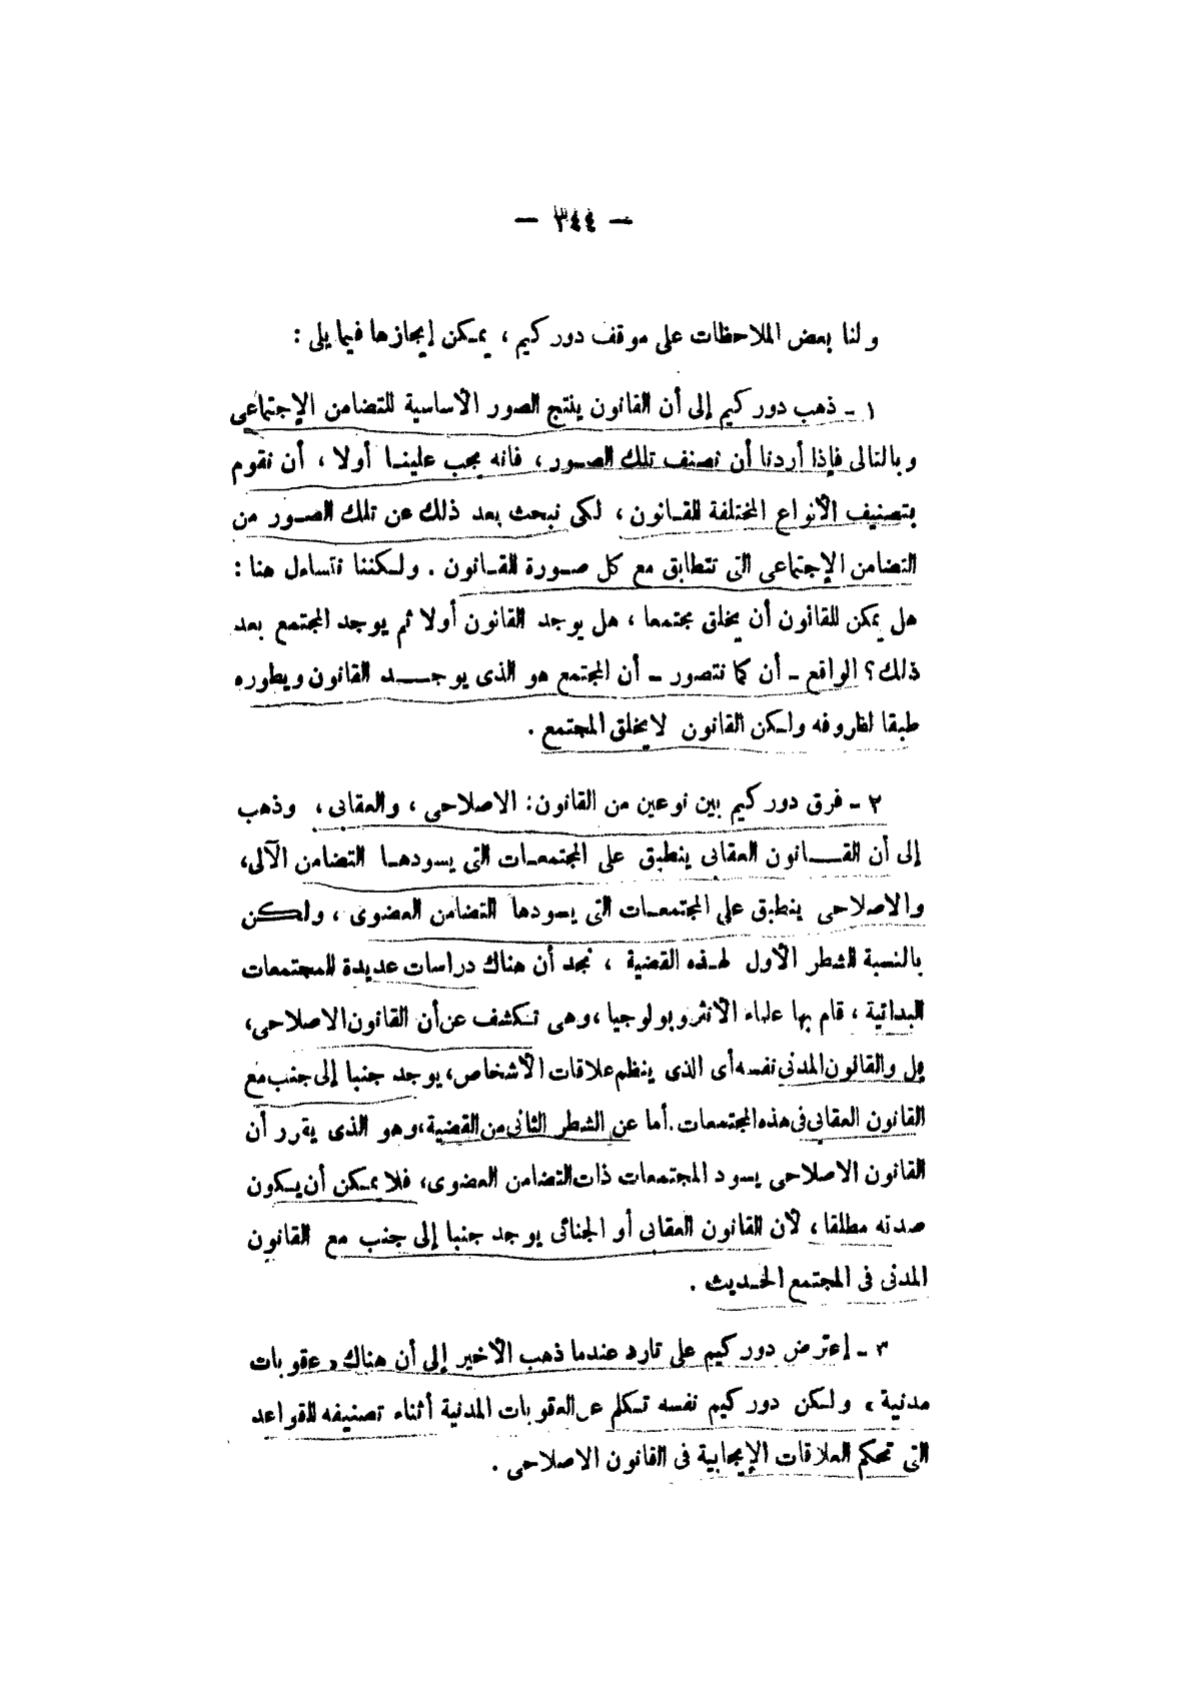 — ٣٤٤ —
ولنا بعض الملاحظات على موقف دوركيم ، يمكن إيجازها فيما يلى :
١ ـ ذهب دوركيم إلى أن القانون ينتج الصور الأساسية للتضامن الإجتماعى
وبالتالى فإذا أردنا أن نصنف تلك الصور ، فانه يجب علينا أولا ، أن نقوم
بتصنيف الأنواع المختلفة للقانون ، لكى نبحث بعد ذلك عن تلك الصور من
التضامن الإجتماعى التى تتطابق مع كل صورة للقانون . ولكننا نتساءل هنا :
هل يمكن للقانون أن يخلق مجتمعا ، هل يوجد القانون أولا ثم يوجد المجتمع بعد
ذلك ؟ الواقع ـ أن كما نتصور ـ أن المجتمع هو الذى يوجد القانون ويطوره
طبقا لظروفه ولكن القانون لا يخلق المجتمع .
٢ ـ فرق دوركيم بين نوعين من القانون : الاصلاحى ، والعقابى ، وذهب
إلى أن القانون العقابى ينطبق على المجتمعات التى يسودها التضامن الآلى ،
والاصلاحى ينطبق على المجتمعات التى يسودها التضامن العضوى ، ولكن
بالنسبة للشطر الأول لهذه القضية ، نجد أن هناك دراسات عديدة للمجتمعات
البدائية ، قام بها علماء الانثروبولوجيا ، وهى تكشف عن أن القانون الاصلاحى ،
بل والقانون المدنى نفسه أى الذى ينظم علاقات الأشخاص ، يوجد جنبا إلى جنب مع
القانون العقابى فى هذه المجتمعات . أما عن الشطر الثانى من القضية ، وهو الذى يقرر أن
القانون الاصلاحى يسود المجتمعات ذات التضامن العضوى ، فلا يمكن أن يكون
صدقه مطلقا ، لأن القانون العقابى أو الجنائى يوجد جنبا إلى جنب مع القانون
المدنى فى المجتمع الحديث .
٣ ـ إعترض دوركيم على تارد عندما ذهب الأخير إلى أن هناك « عقوبات
مدنية » ولكن دوركيم نفسه تكلم عن العقوبات المدنية أثناء تصنيفه للقواعد
التى تحكم العلاقات الإيجابية فى القانون الاصلاحى .